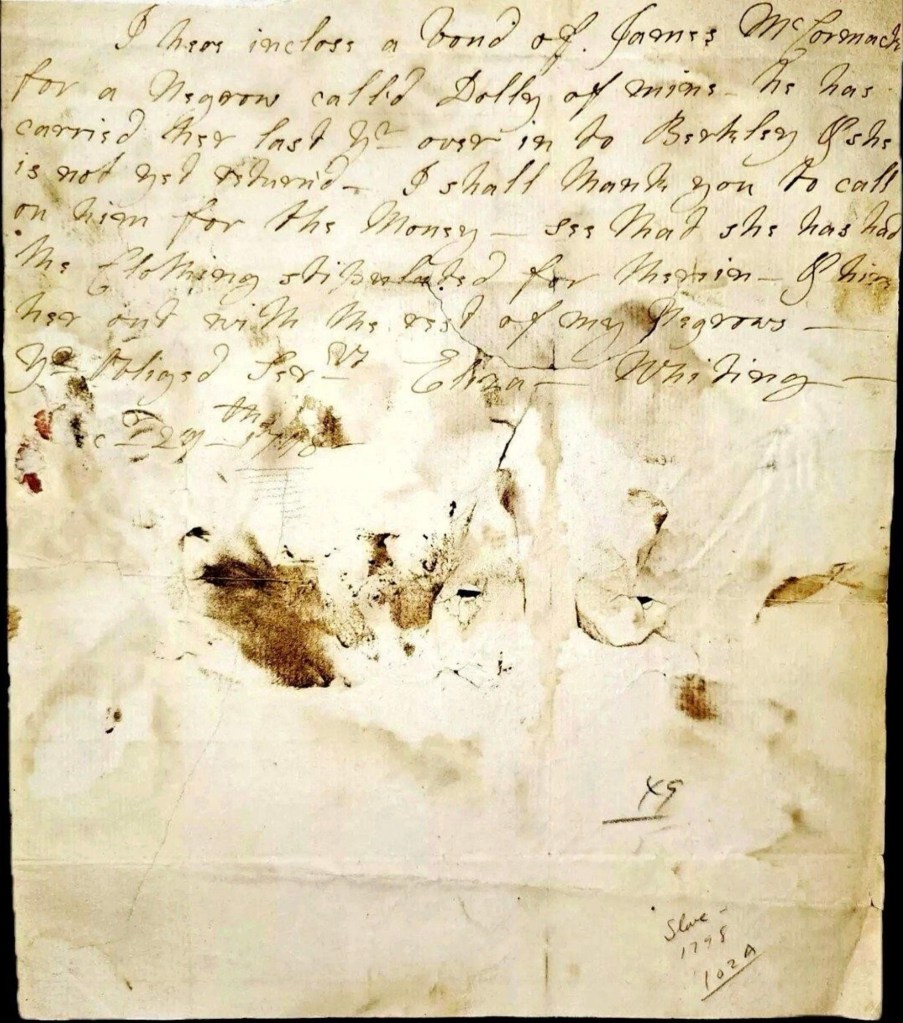 I here inclose a bond of James McCormack
for a Negrow call'd Dolly of mine - he has
carried her last Yr over in to Berkley & she
is not yet returnd - I shall thank you to call
on him for the Money - see that she has had
the Clothing stipulated for therein - & hire
her out with the rest of my Negrows -
Yr Obliged Servt Eliza - Whiting -
29th
X9
Slave -
1798
102A